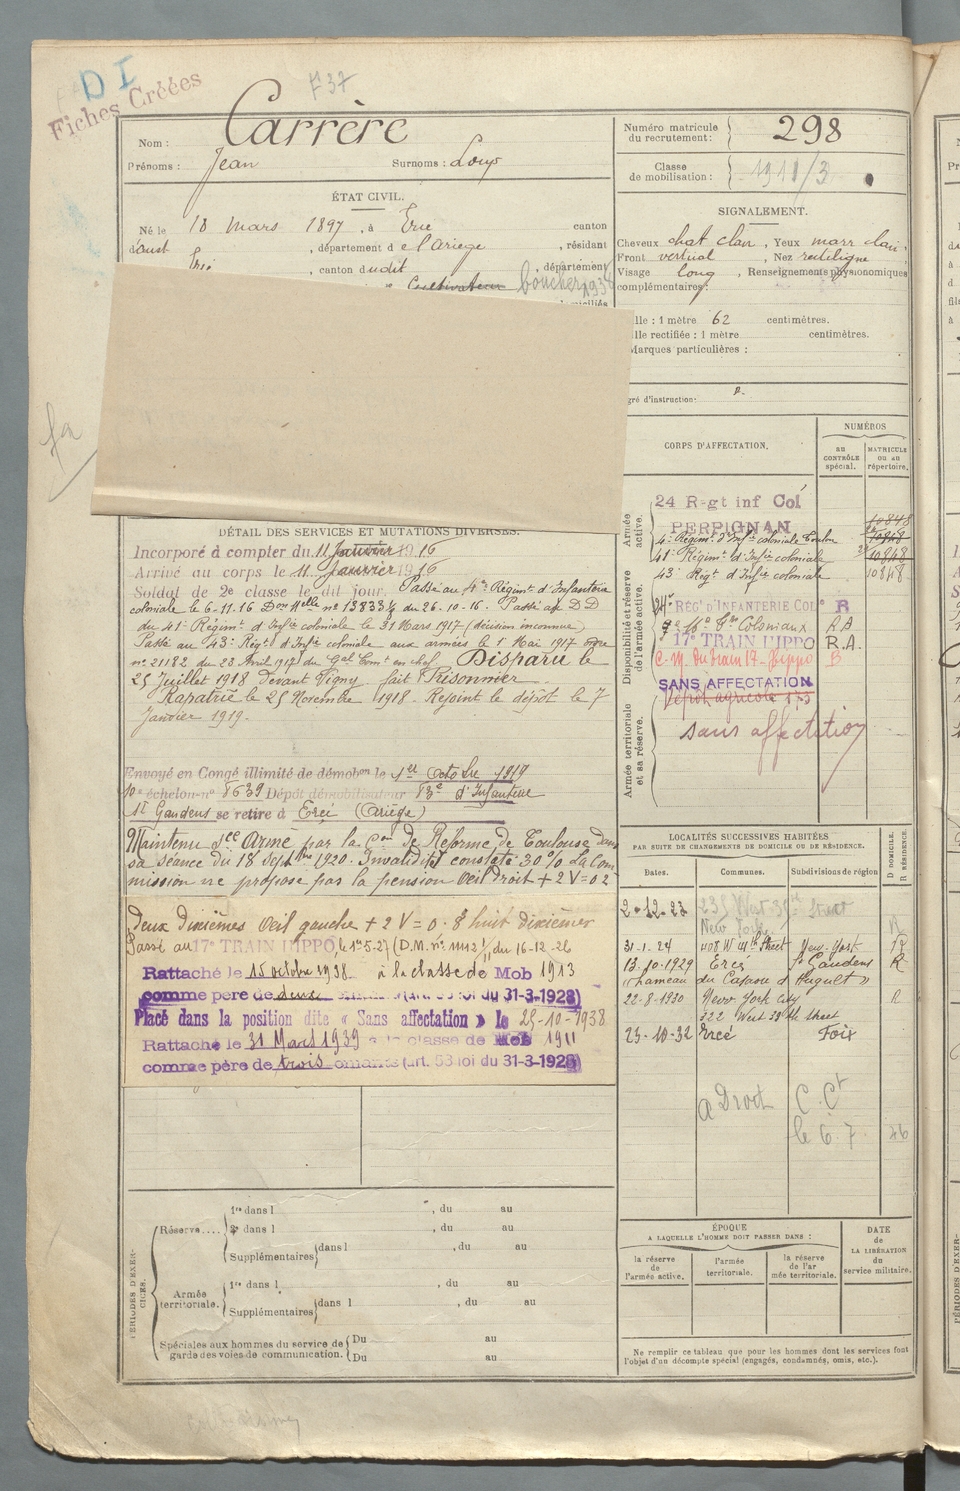 D I
Fiches Créées
F37
Nom : Carrère
Prénoms : Jean Surnoms : Loup
Numéro matricule du recrutement : 298
Classe de mobilisation : 1911/3
ÉTAT CIVIL.
Né le 18 mars 1897, à Ercé canton
d'oust, département de l'Ariège, résidant
Ercé, canton dudit, département
Cultivateur boucher 1938
domiciliés
SIGNALEMENT.
Cheveux chat clair, Yeux marr clair
Front vertical, Nez rectiligne
Visage long, Renseignements physionomiques
complémentaires :
ille : 1 mètre 62 centimètres.
ille rectifiée : 1 mètre centimètres.
Marques particulières :
gré d'instruction :
CORPS D'AFFECTATION.
NUMÉROS
au CONTRÔLE spécial.
MATRICULE ou au répertoire.
Armée active.
24 Rgt inf Col
PERPIGNAN
10848
4e Régimt d'Infie coloniale Toulon 10848
41e Régimt d'Infie coloniale 10848
43e Régt d'Infie coloniale 10848
Disponibilité et réserve de l'armée active.
24e RÉG' D'INFANTERIE COLe R
Coloniaux RA
17e TRAIN HIPPO R.A.
C.M. du train 17 Hippo B
SANS AFFECTATION
Dépôt agricole 173
Armée territoriale et sa réserve.
sans affectation
DÉTAIL DES SERVICES ET MUTATIONS DIVERSES.
Incorporé à compter du 11 Janvier 1916
Arrivé au corps le 11 Janvier 1916
Soldat de 2e classe le dit jour. Passé au 4e Régimt d'Infanterie
coloniale le 6-11-16 Don Mlle no 13833 1/4 du 26-10-16. Passé au DD
du 41e Régimt d'Infie coloniale le 31 Mars 1917 (décision inconnue)
Passé au 43e Régt d'Infie coloniale aux armées le 1er Mai 1917 ordre
no 21182 du 23 Avril 1917 du Gal Comt en chef. Disparu le
25 Juillet 1918 devant Vigny fait Prisonnier.
Rapatrié le 25 Novembre 1918. Rejoint le dépôt le 7
Janvier 1919.
Envoyé en Congé illimité de démobon le 1er Octobre 1919
10e échelon no 8639 Dépôt démobilisateur 83e d'Infanterie
St Gaudens se retire à Ercé (Ariège)
Maintenu sce Armé par la Con de Réforme de Toulouse dans
sa séance du 18 septbre 1920. Invalidité constatée 30% La Com
mission ne propose pas la pension Oeil droit + 2 V = 0 2
Deux Dixièmes Oeil gauche + 2 V = 0.8 huit dixièmes
Passé au 17e TRAIN HIPPO, le 1er-5-27 (D.M. no 11112 du 16-12-26
Rattaché le 15 octobre 1938 à la classe de Mob 1913
comme père de deux enfants (art. 58 loi du 31-3-1928)
Placé dans la position dite « Sans affectation » le 25-10-1938
Rattaché le 31 Mars 1939 à la classe de Mob 1911
comme père de trois enfants (art. 58 loi du 31-3-1928)
LOCALITÉS SUCCESSIVES HABITÉES
PAR SUITE DE CHANGEMENTS DE DOMICILE OU DE RÉSIDENCE.
Dates. Communes. Subdivisions de région D DOMICILE. R RÉSIDENCE.
2-12-23 235 West 39th Street
New York. R
31-1-24 408 W 41th Street New-York R
13.10.1929 Ercé St Gaudens R
"hameau du Casaou d'Huguet"
22-8-1930 New York City R
322 West 39th Street
23-10-32 Ercé Foix
a Droit C. Ct
le 6.7. 36
PÉRIODES D'EXERCICES.
Réserve.... 1re dans l , du au
2e dans l , du au
Supplémentaires dans l , du au
Armée territoriale. 1re dans l , du au
Supplémentaires dans l , du au
Spéciales aux hommes du service de garde des voies de communication. Du au
Du au
ÉPOQUE
A LAQUELLE L'HOMME DOIT PASSER DANS :
la réserve de l'armée active.
l'armée territoriale.
la réserve de l'armée territoriale.
DATE de LA LIBÉRATION du service militaire.
Ne remplir ce tableau que pour les hommes dont les services font
l'objet d'un décompte spécial (engagés, condamnés, omis, etc.).